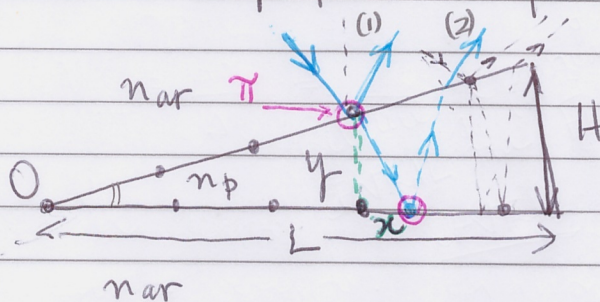 (1) (2)
n ar
π
H
O
n p
y
x
L
n ar